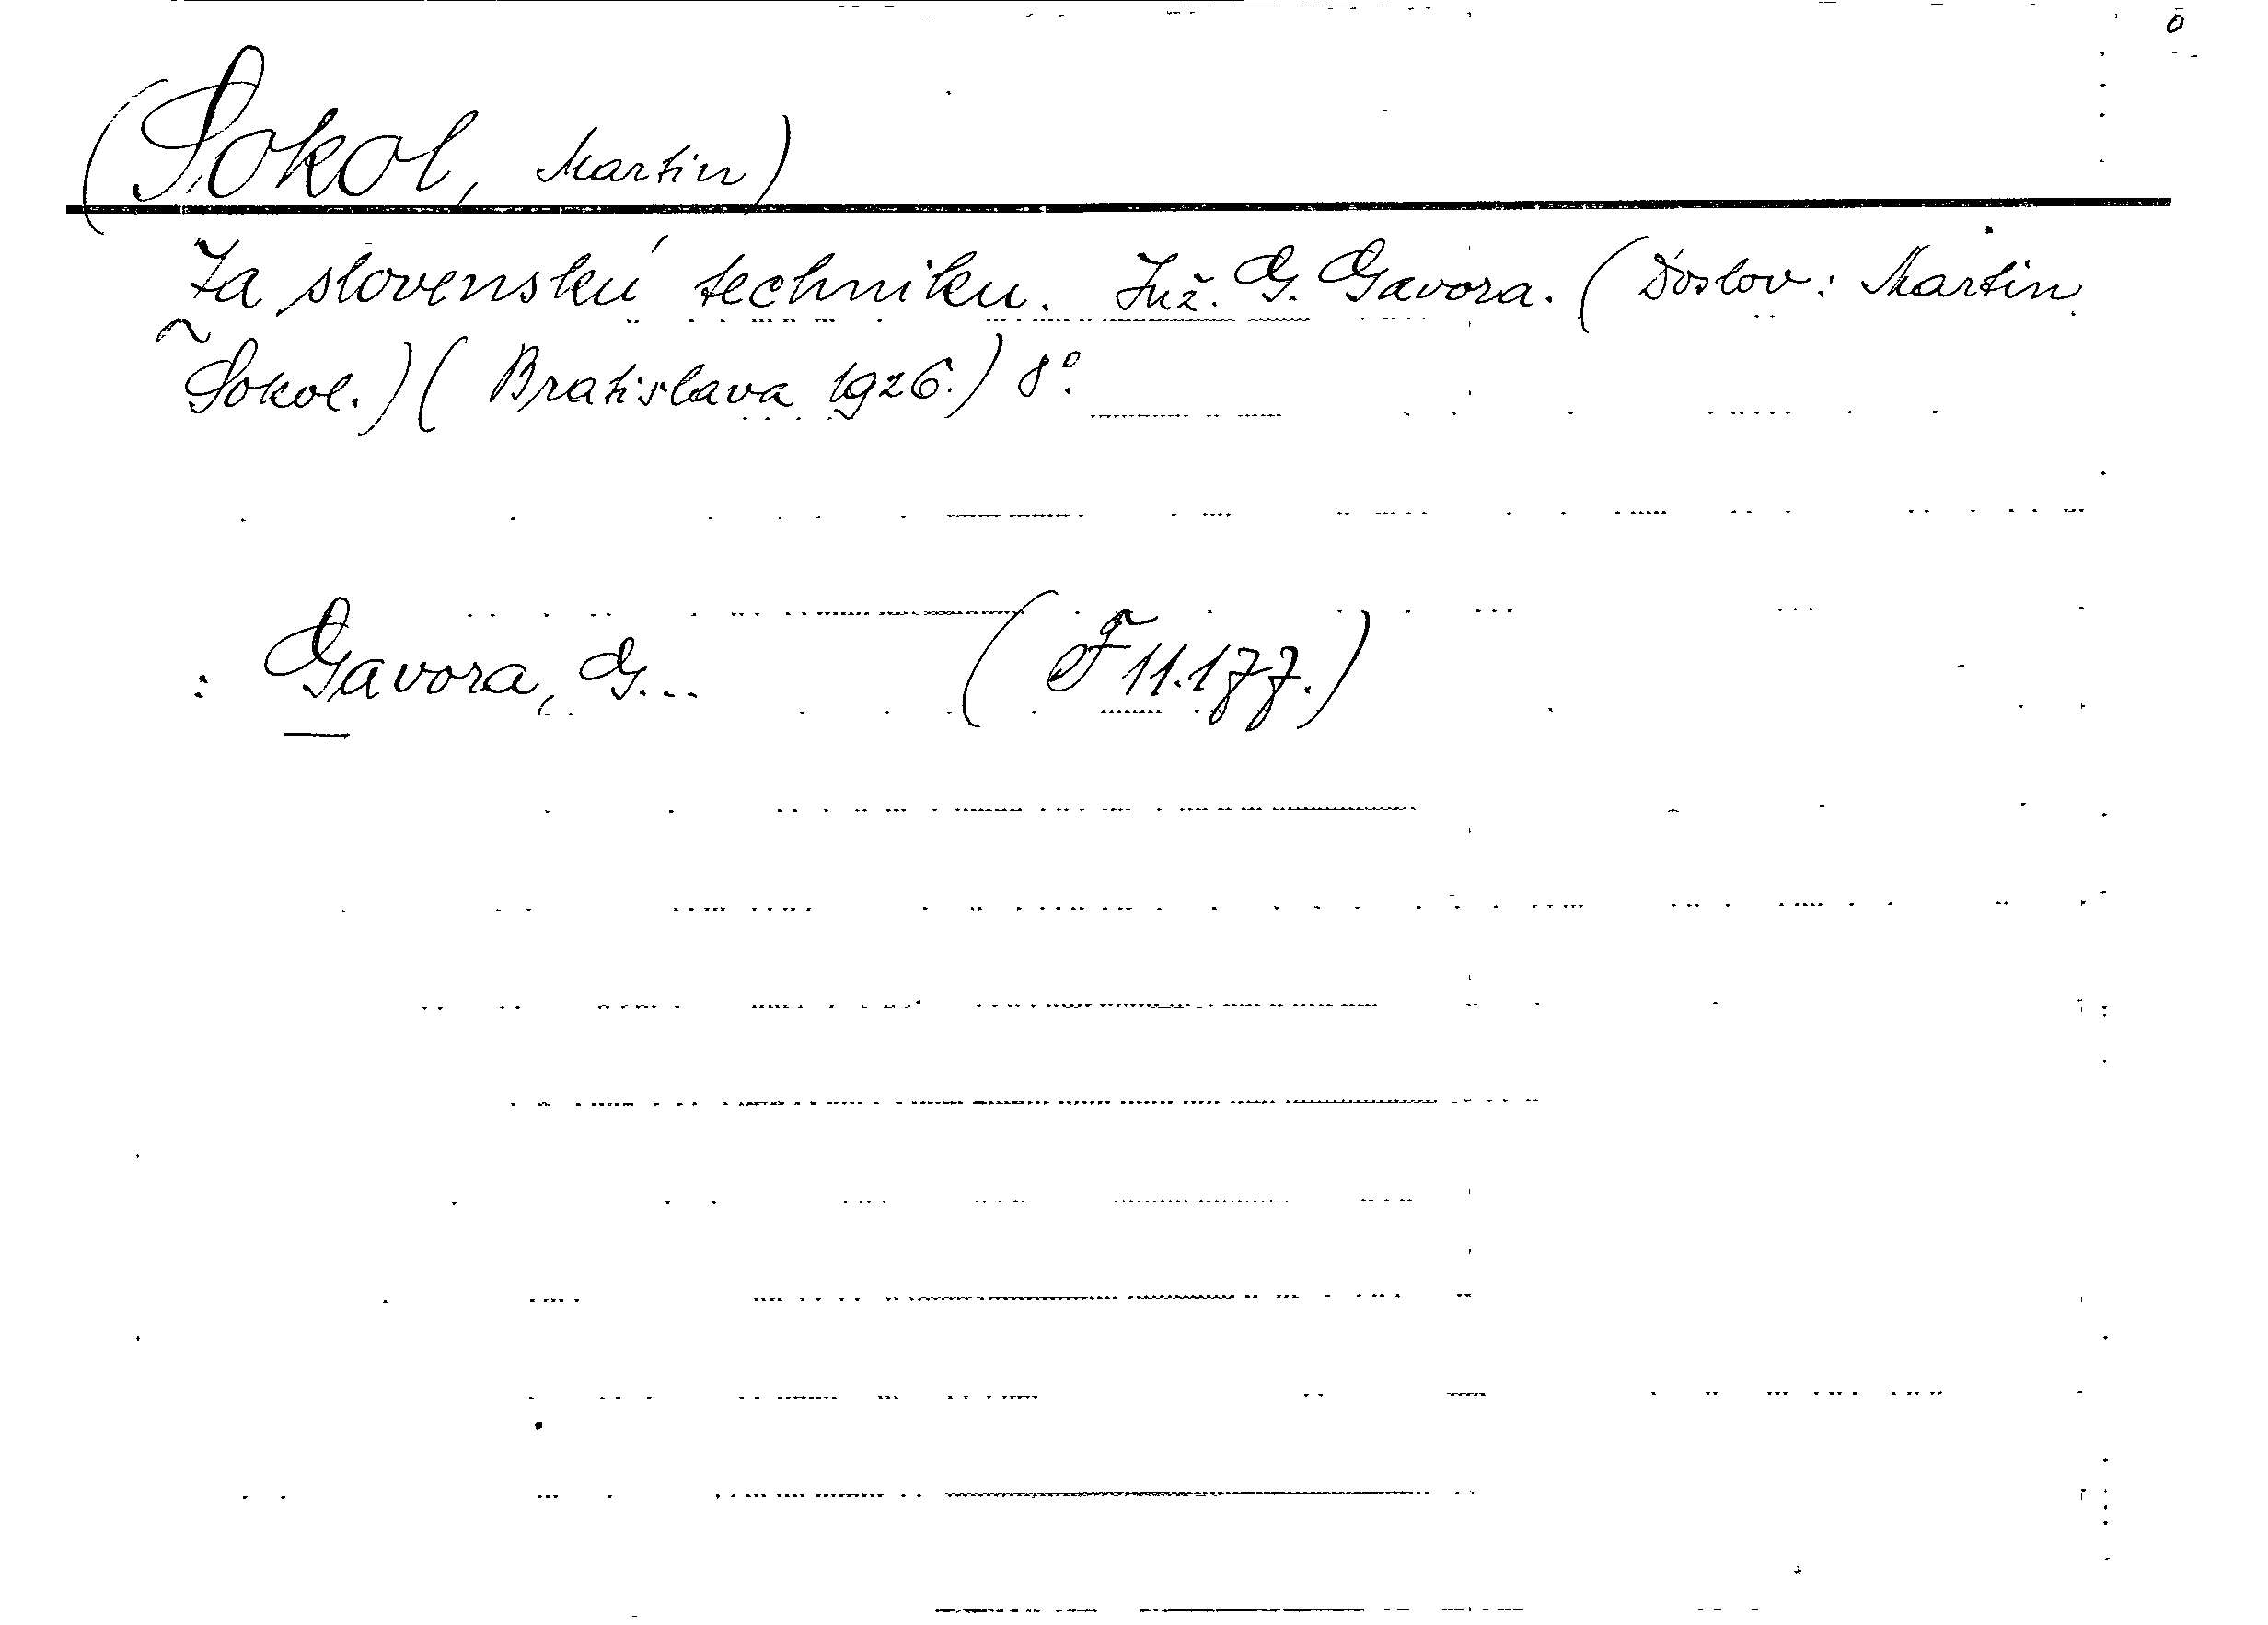 (Sokol, Martin)
Za slovenskú techniku. Inž. G. Gavora. (Doslov: Martin
Sokol.) (Bratislava 1926.) 8°.
: Gavora, G... (F 11.177.)